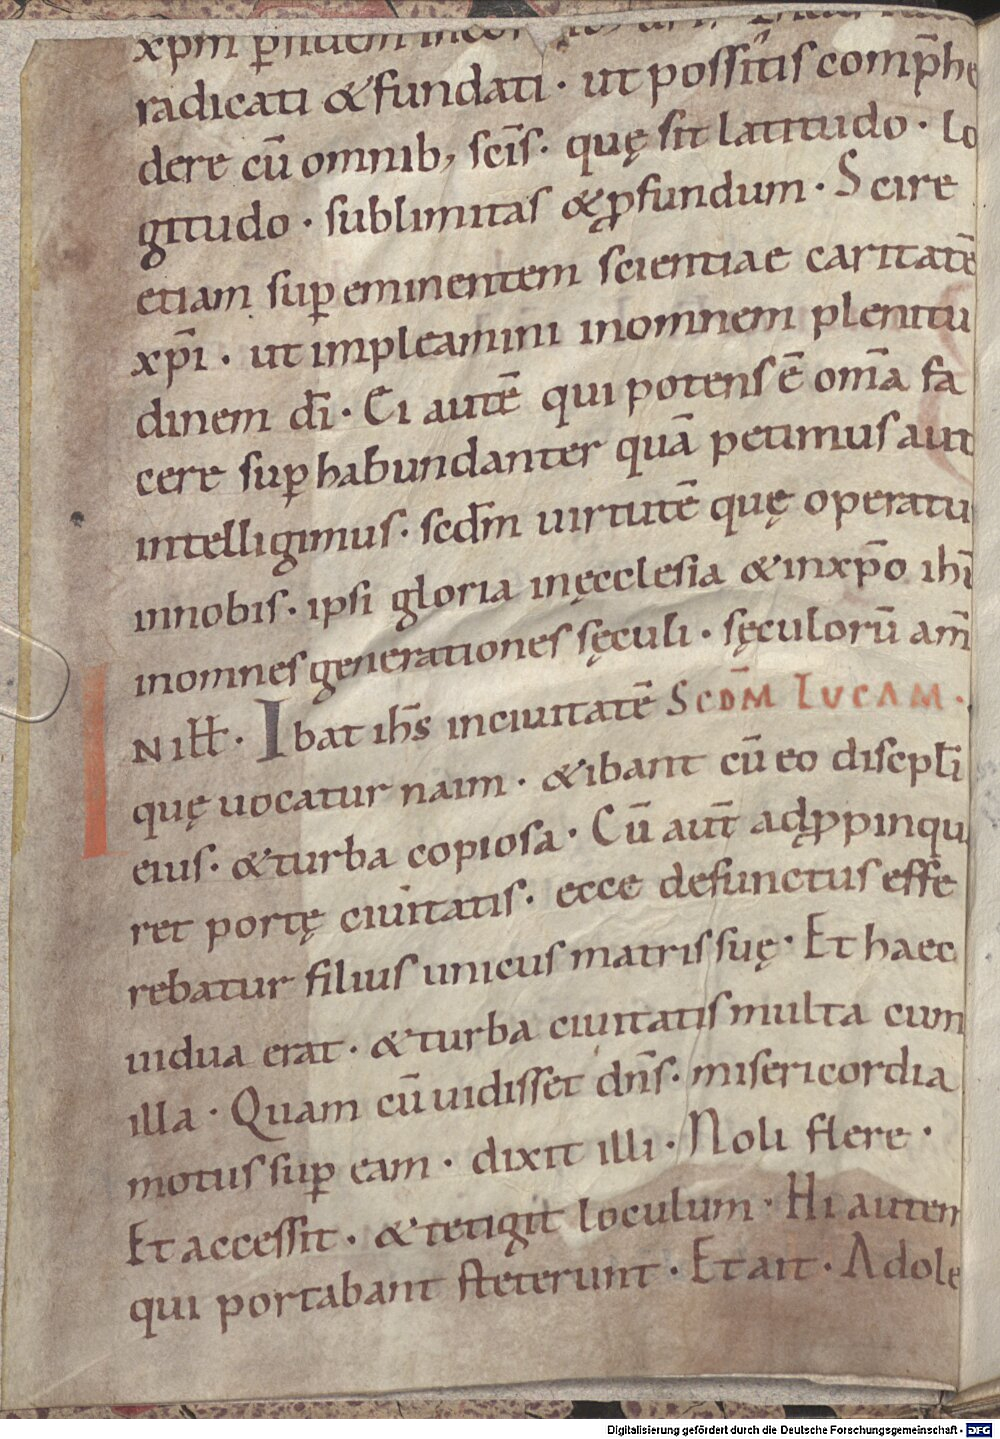 xp̄m p̄ fidem in cor
radicati & fundati · ut possitis comp̄he
dere cū omnib; sc̄is · quę sit latitudo · lo
gitudo · sublimitas & ꝓfundum · Scire
etiam suꝑ eminentem scientiae caritatē
xp̄i · ut impleamini inomnem plenitu
dinem dī · Ei autē qui potens ē om̄a fa
cere suꝑ habundanter quā petimus aut
intelligimus · scd̄m uirtutē quę operatu
innobis · ipsi gloria inęcclesia & inxp̄o ih̄
inomnes generationes sęculi · sęculorū am̄
IN ill̄ · Ibat ih̄s inciuitatē Scd̄m Lucam ·
quę uocatur naim · & ibant cū eo discipl̄i
eius · & turba copiosa · Cū aut̄ adꝓpinqu
ret portę ciuitatis · ecce defunctus effe
rebatur filius unicus matris suę · Et haec
uidua erat · & turba ciuitatis multa cum
illa · Quam cū uidisset dn̄s · misericordia
motus suꝑ eam · dixit illi · Noli flere ·
Et accessit · & tetigit loculum · Hi autem
qui portabant steterunt · Et ait · Adole
Digitalisierung gefördert durch die Deutsche Forschungsgemeinschaft - DFG